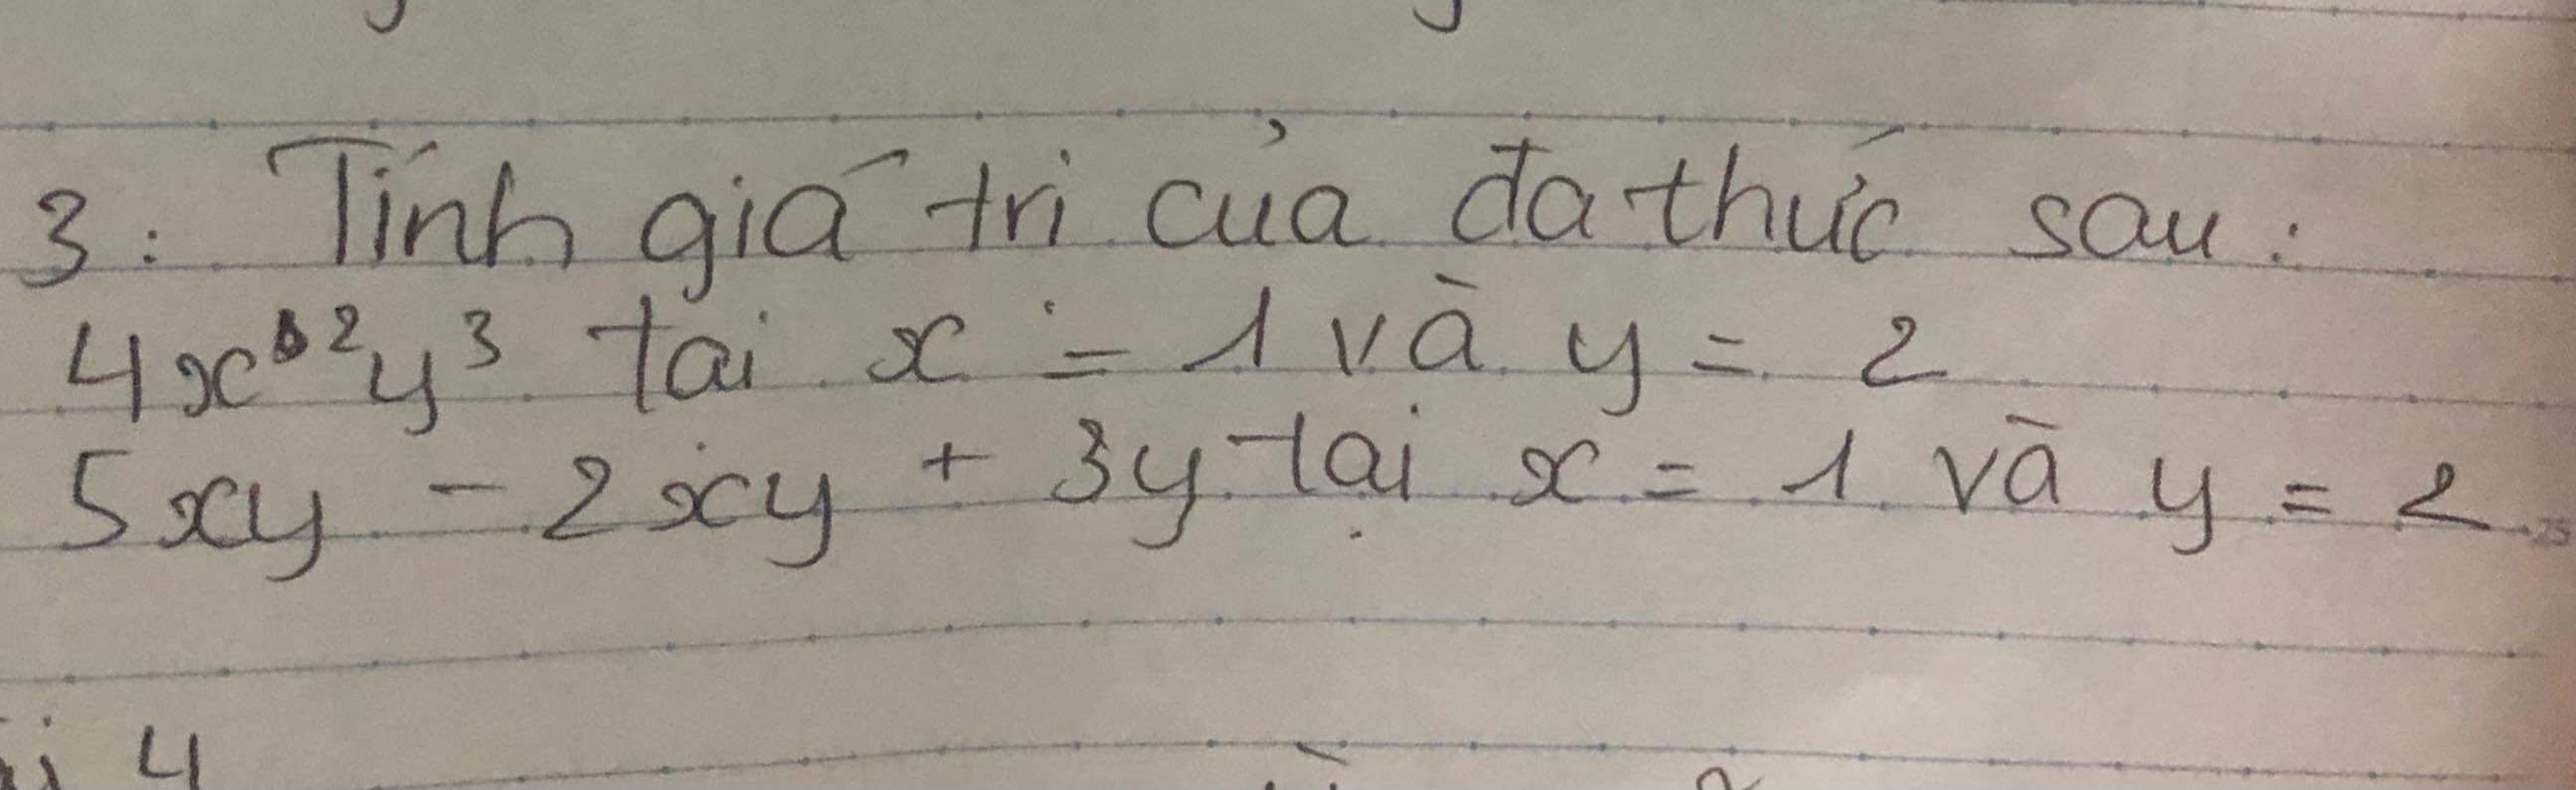 3: Tính giá tri của đa thức sau:
4x²y³ tai x = 1 và y = 2
5xy - 2xy + 3y tại x = 1 và y = 2
i 4